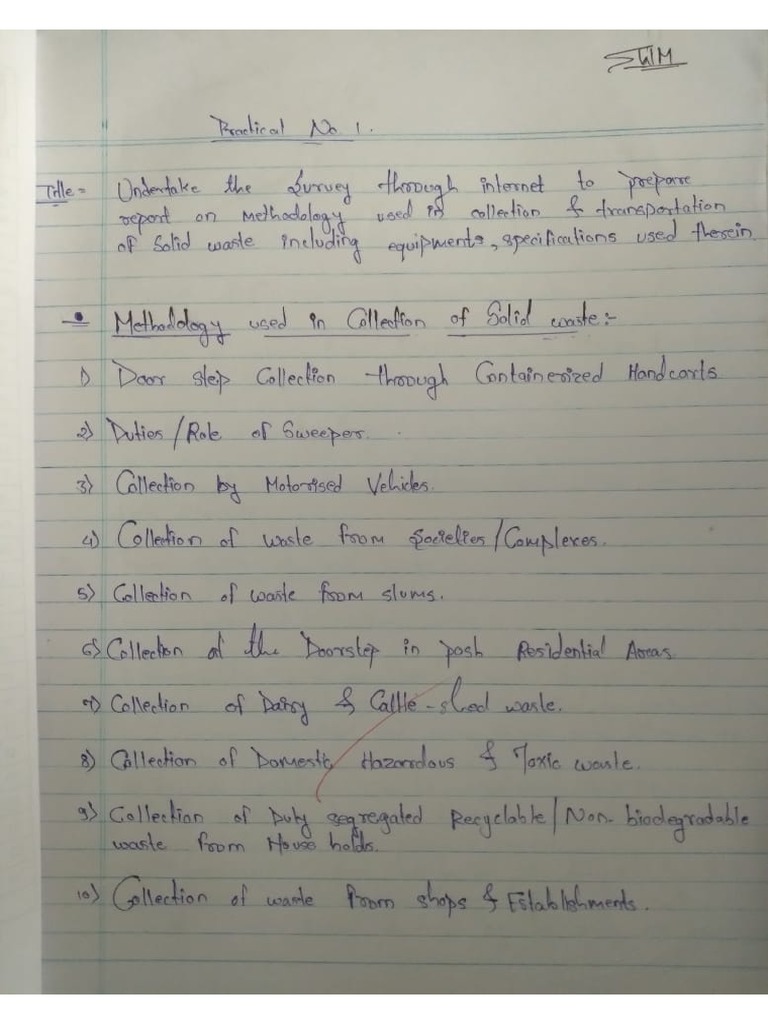 SWM
Practical No 1.
Title = Undertake the Survey through internet to prepare
report on Methodology used in collection & transportation
of Solid waste including equipments, specifications used therein.
Methodology used in Collection of Solid waste:-
1) Door step Collection through Containerized Handcarts
2) Duties/Role of Sweepers.
3) Collection by Motorised Vehicles.
4) Collection of waste from Societies/Complexes.
5) Collection of waste from slums.
6) Collection at the Doorstep in posh Residential Areas
7) Collection of Dairy & Cattle-shed waste.
8) Collection of Domestic Hazardous & Toxic waste.
9) Collection of Duty segregated Recyclable/Non-biodegradable
waste from House holds.
10) Collection of waste from shops & Establishments.